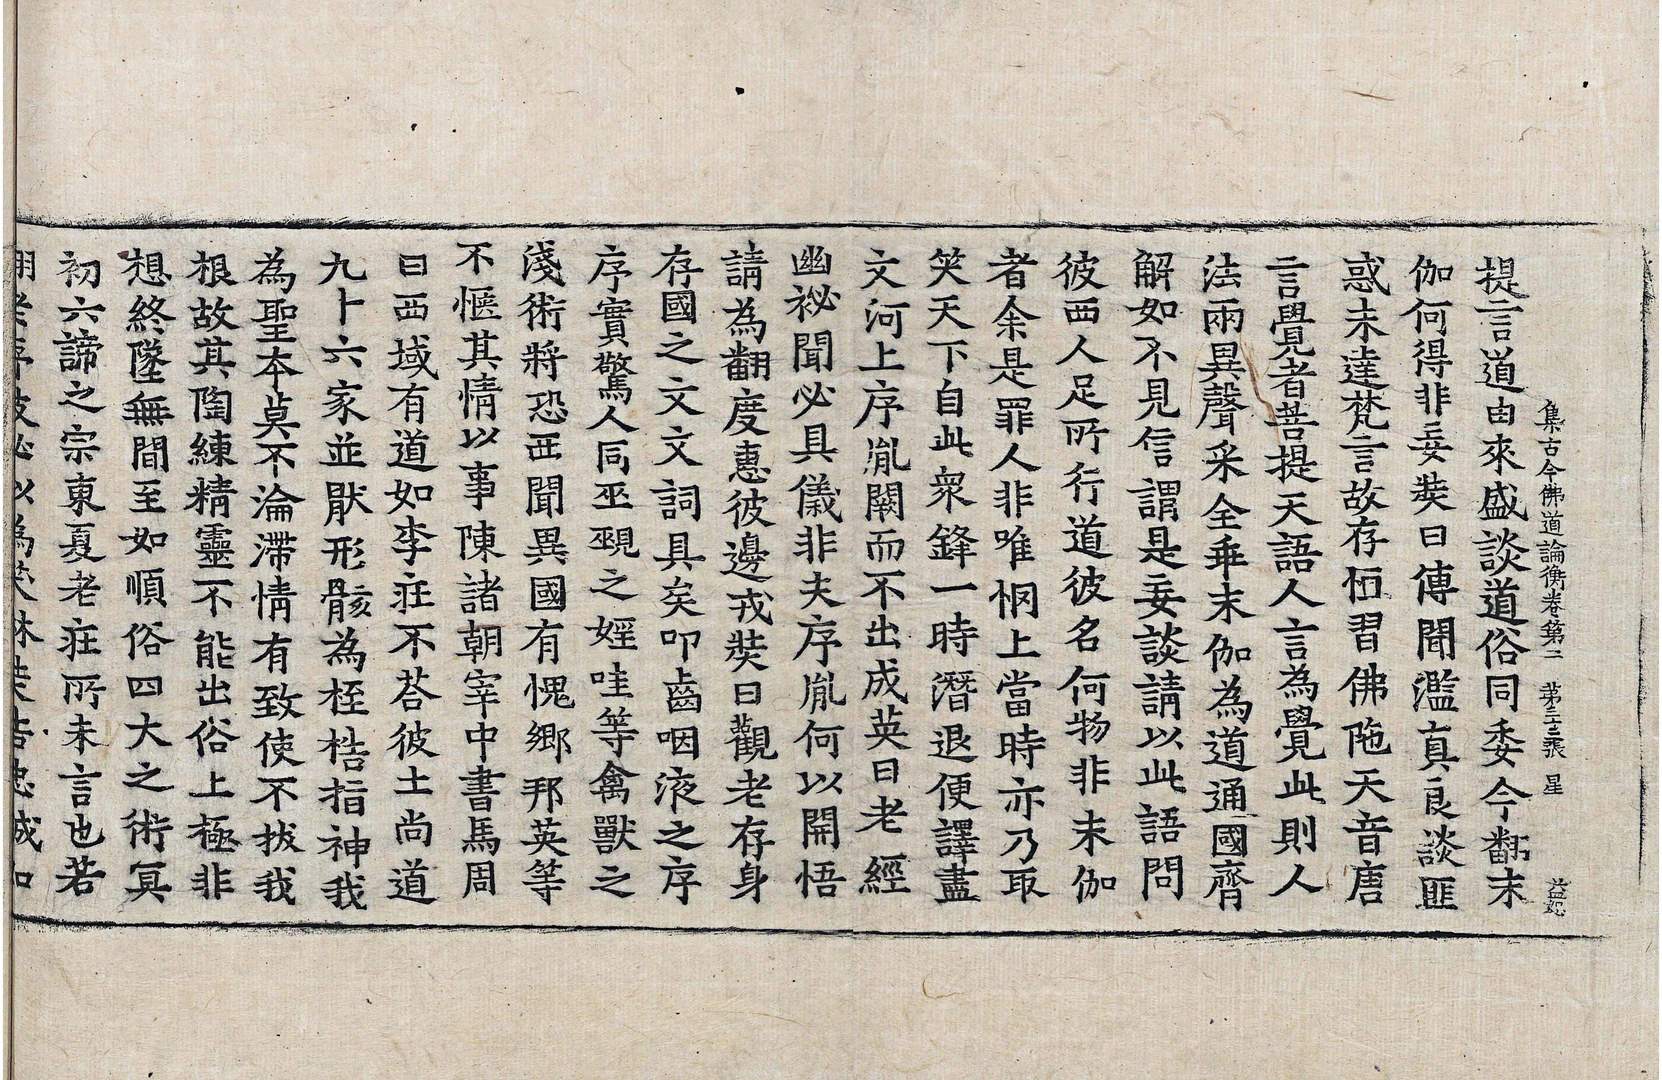 集古今佛道論衡卷第二　第三十三張　星
提言道由來盛談道俗同委今翻末
伽何得非妄奘曰傳聞濫真良談匪
惑未達梵言故存恒習佛陁天音唐
言覺者菩提天語人言為覺此則人
法兩異聲采全乖末伽為道通國齊
解如不見信謂是妄談請以此語問
彼西人足所行道彼名何物非末伽
者余是罪人非唯惘上當時亦乃取
笑天下自此衆鋒一時潛退便譯盡
文河上序胤闕而不出成英曰老經
幽祕聞必具儀非夫序胤何以開悟
請為翻度惠彼邊戎奘曰觀老存身
存國之文文詞具矣叩齒咽液之序
序實驚人同巫覡之婬哇等禽獸之
淺術將恐西聞異國有愧鄉邦英等
不愜其情以事陳諸朝宰中書馬周
曰西域有道如李莊不荅彼土尚道
九十六家並猒形骸為桎梏指神我
為聖本莫不淪滯情有致使不拔我
根故其陶練精靈不能出俗上極非
想終墜無間至如順俗四大之術冥
初六諦之宗東夏老莊所未言也若